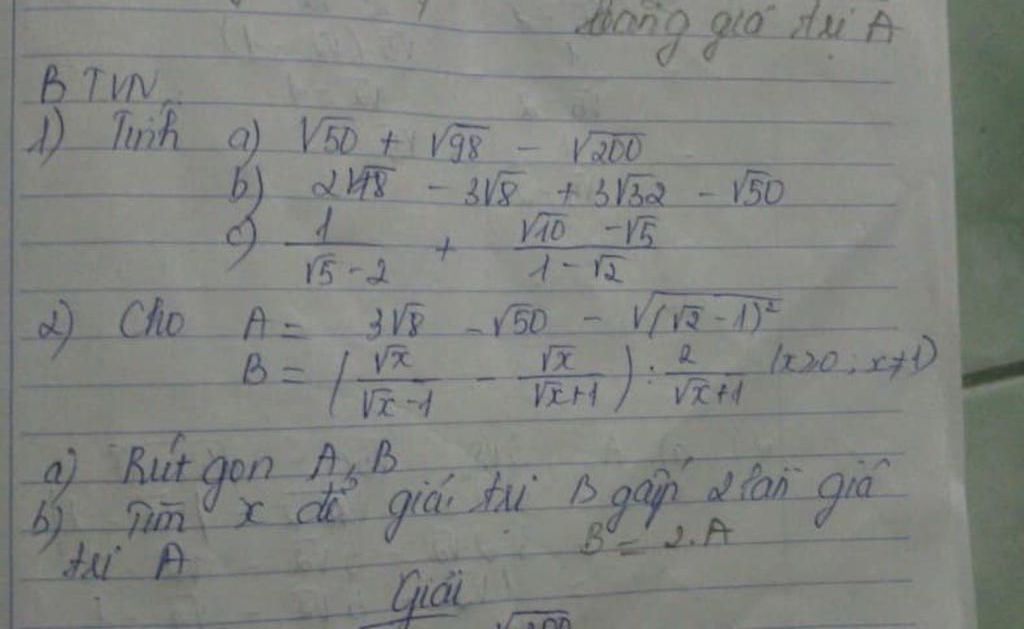 bằng giá trị A
BTVN
1) Tính a) √50 + √98 - √200
b) 2√18 - 3√8 + 3√32 - √50
c) 1/(√5 - 2) + (√10 - √5)/(1 - √2)
2) Cho A = 3√8 - √50 - √((√2 - 1)²)
B = (√x/(√x - 1) - √x/(√x + 1)) : 2/(√x + 1) (x≥0; x≠1)
a) Rút gọn A, B
b) Tìm x để giá trị B gấp 2 lần giá
trị A B = 2.A
Giải
√200